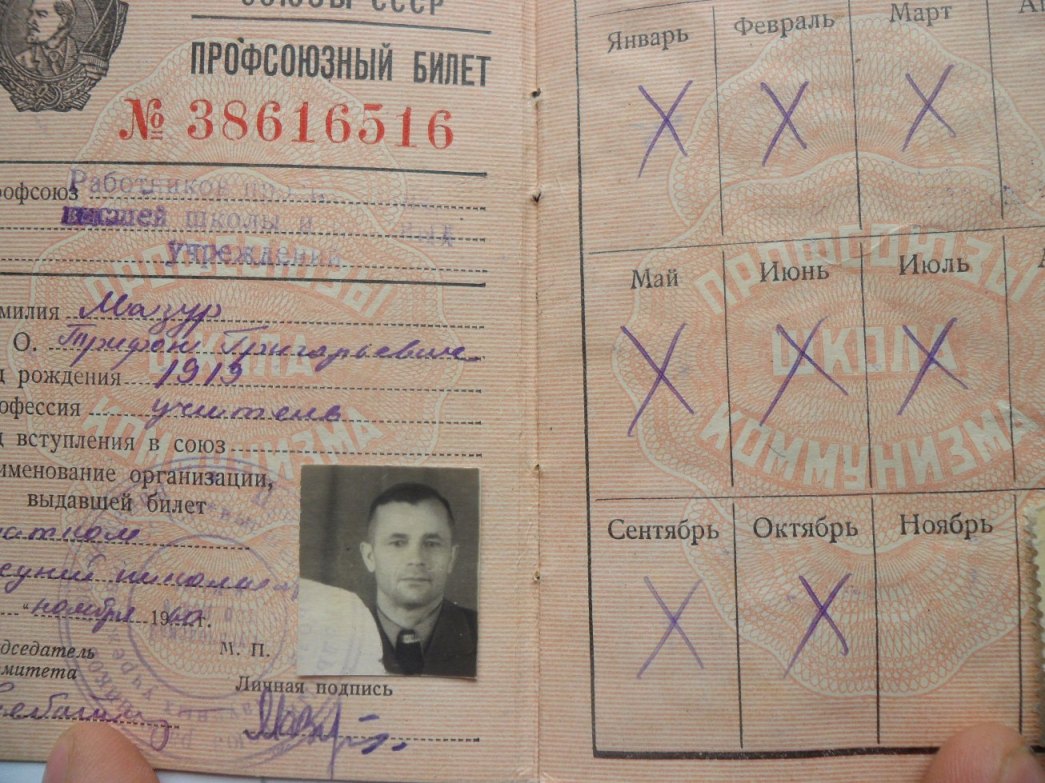 СОЮЗЫ СССР
ПРОФСОЮЗНЫЙ БИЛЕТ
№ 38616516
рофсоюз Работников
высшей школы и
учреждений
милия Мазур
О. Трифон Григорьевич
д рождения 1919
офессия учитель
д вступления в союз
именование организации,
выдавшей билет
"ноября 1960 г.
едседатель
митета
М. П.
Личная подпись
Январь Февраль Март
ПРОФСОЮЗЫ
ШКОЛА
КОММУНИЗМА
Май Июнь Июль
ПРОФСОЮЗЫ
ШКОЛА
КОММУНИЗМА
Сентябрь Октябрь Ноябрь